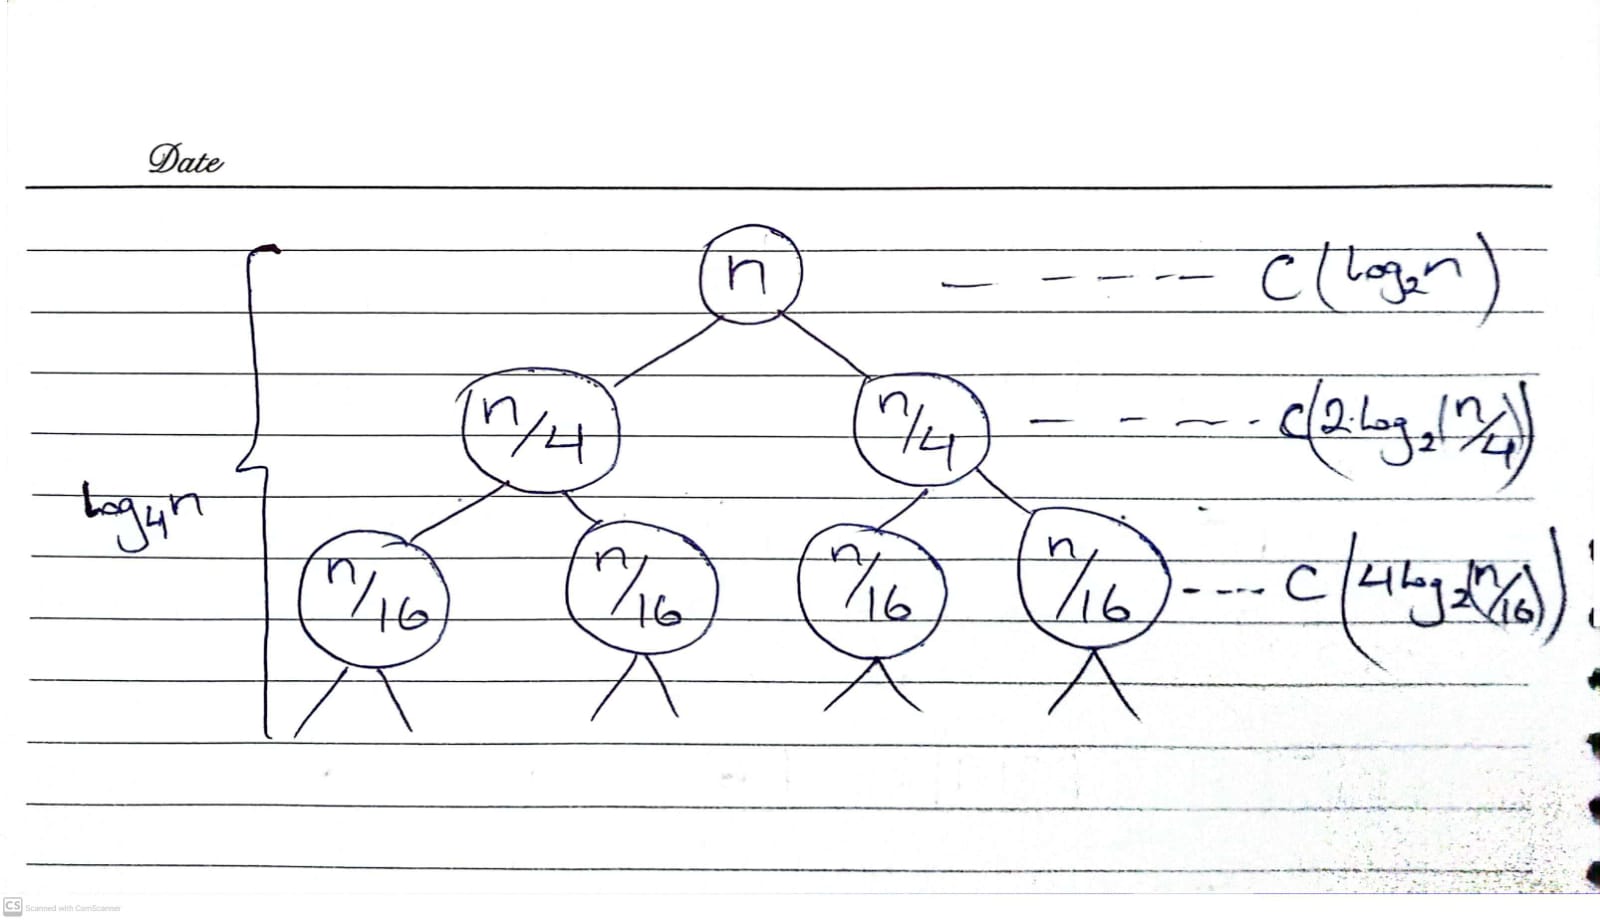 Date
n - - - - - C(log₂n)
n/4 n/4 - - - - - C(2.log₂(n/4))
log₄n
n/16 n/16 n/16 n/16 ---- C(4log₂(n/16))
CS Scanned with CamScanner